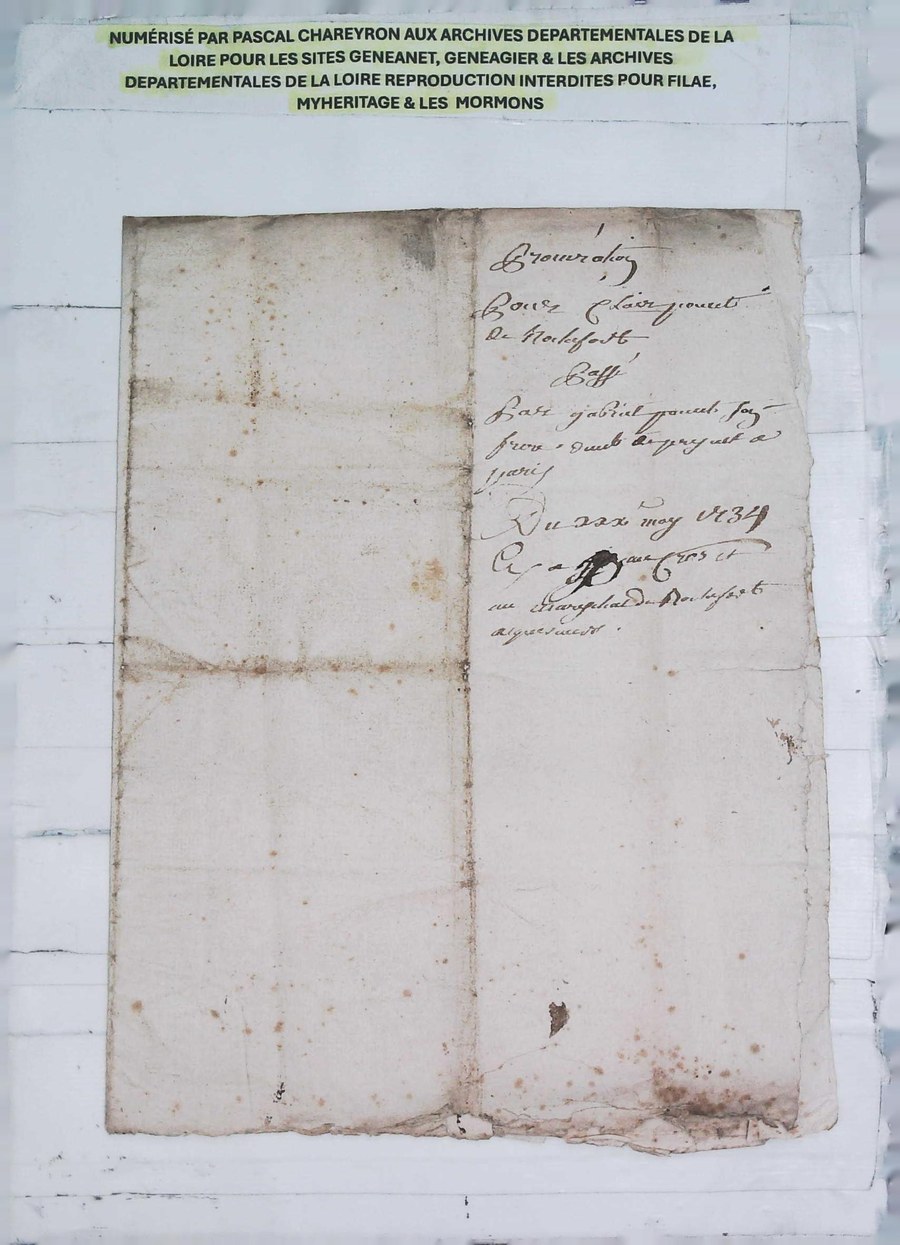 NUMÉRISÉ PAR PASCAL CHAREYRON AUX ARCHIVES DEPARTEMENTALES DE LA
LOIRE POUR LES SITES GENEANET, GENEAGIER & LES ARCHIVES
DEPARTEMENTALES DE LA LOIRE REPRODUCTION INTERDITES POUR FILAE,
MYHERITAGE & LES MORMONS
Procuration
Pour Claire
de Rochefort
Passé
Par gabriel son
frere a
paris
Du xxx may 1734
et
au mareschal de Rochefort